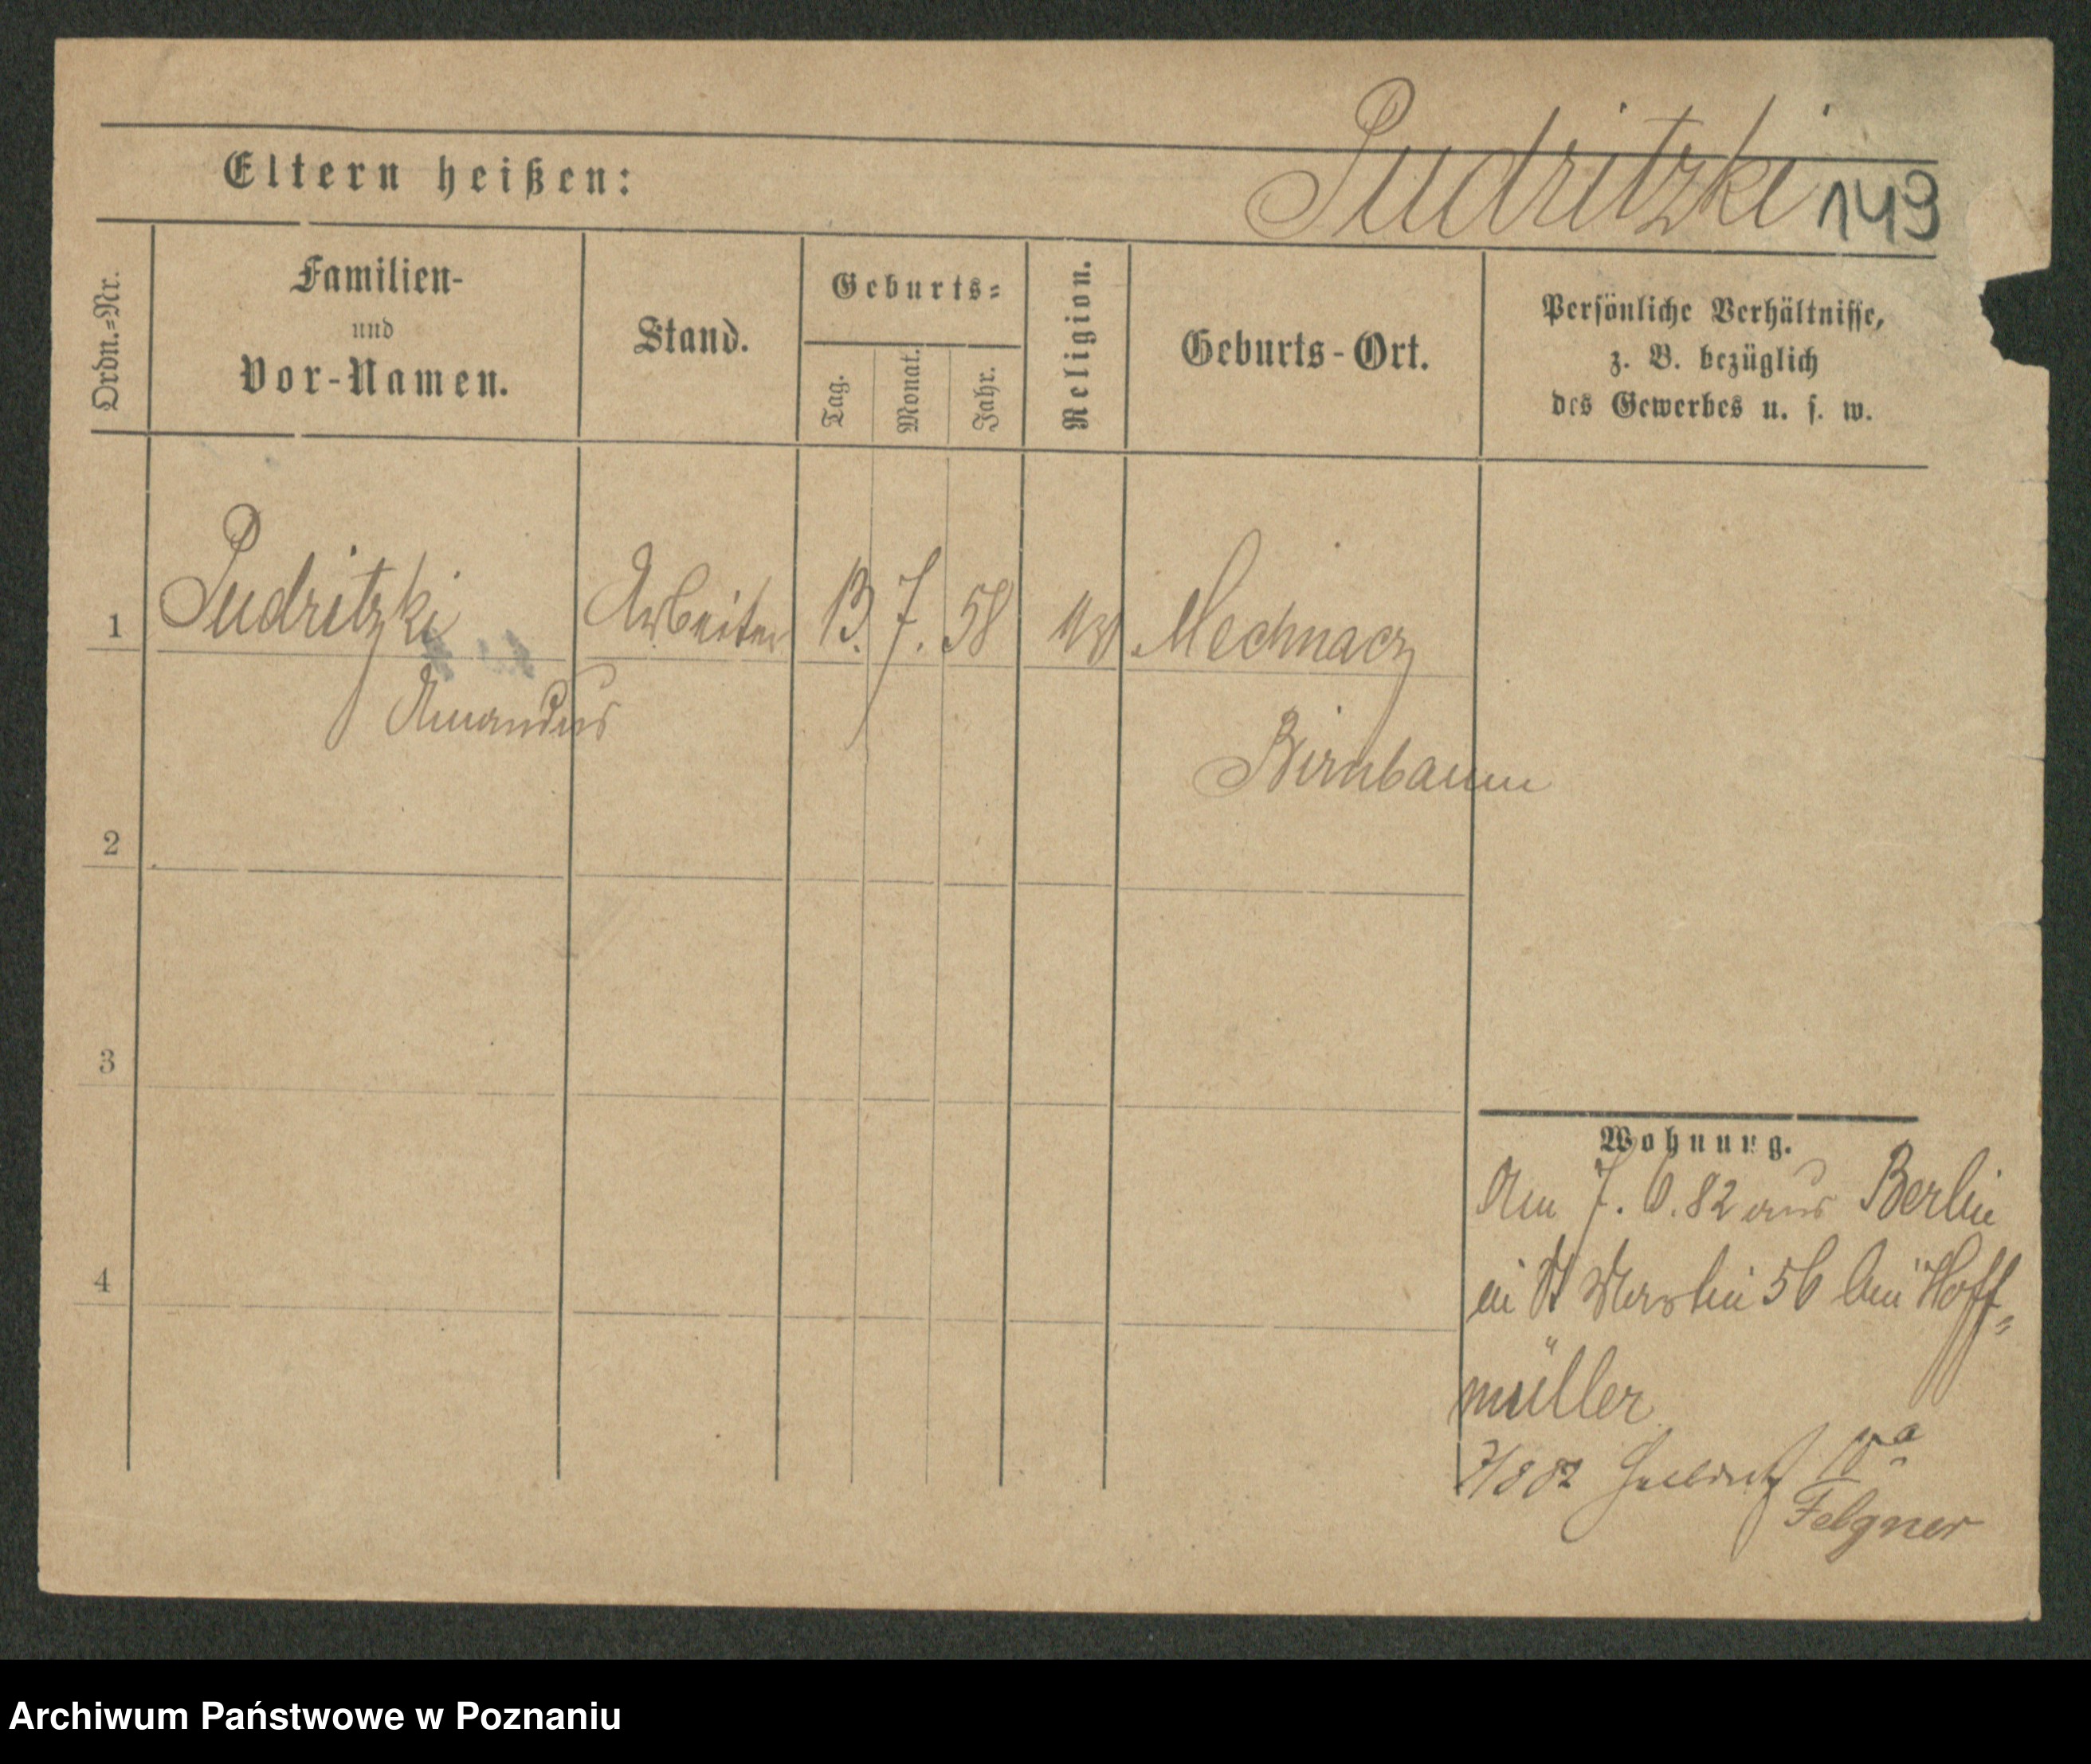 Pudritzki 149
Eltern heißen:
Ordn.=Nr.
Familien-
und
Vor-Namen.
Stand.
Geburts=
Tag.
Monat.
Jahr.
Religion.
Geburts-Ort.
Persönliche Verhältnisse,
z. B. bezüglich
des Gewerbes u. s. w.
1 Pudritzki Arbeiter 13. 7. 58 Mechnacz
Amandus
Birnbaum
2
3
4
Wohnung.
Am 7. 6. 82 aus Berlin
in St Martin 56 bei Hoff=
müller
7/8 82
Felgner
Archiwum Państwowe w Poznaniu